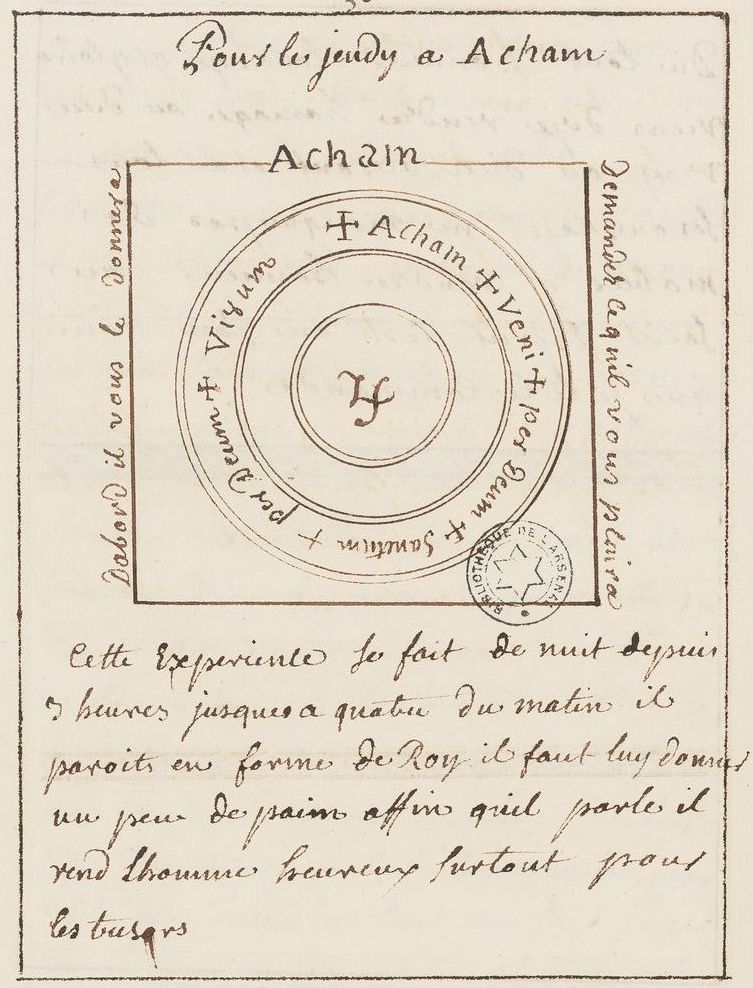 Pour le jeudy a Acham
Acham
Dabord il vous le donnera
Demander ce quil vous plaira
✠ Acham ✠ Veni ✠ per Deum ✠ Sanctum ✠ per Deum ✠ Vivum
♃
BIBLIOTHEQUE DE L'ARSENAL
Cette Experience se fait de nuit depuis
3 heures jusques a quatre du matin il
paroits en forme de Roy il faut luy donner
un peu de paim affin quil parle il
rend Lhomme heureux surtout pour
les tresors